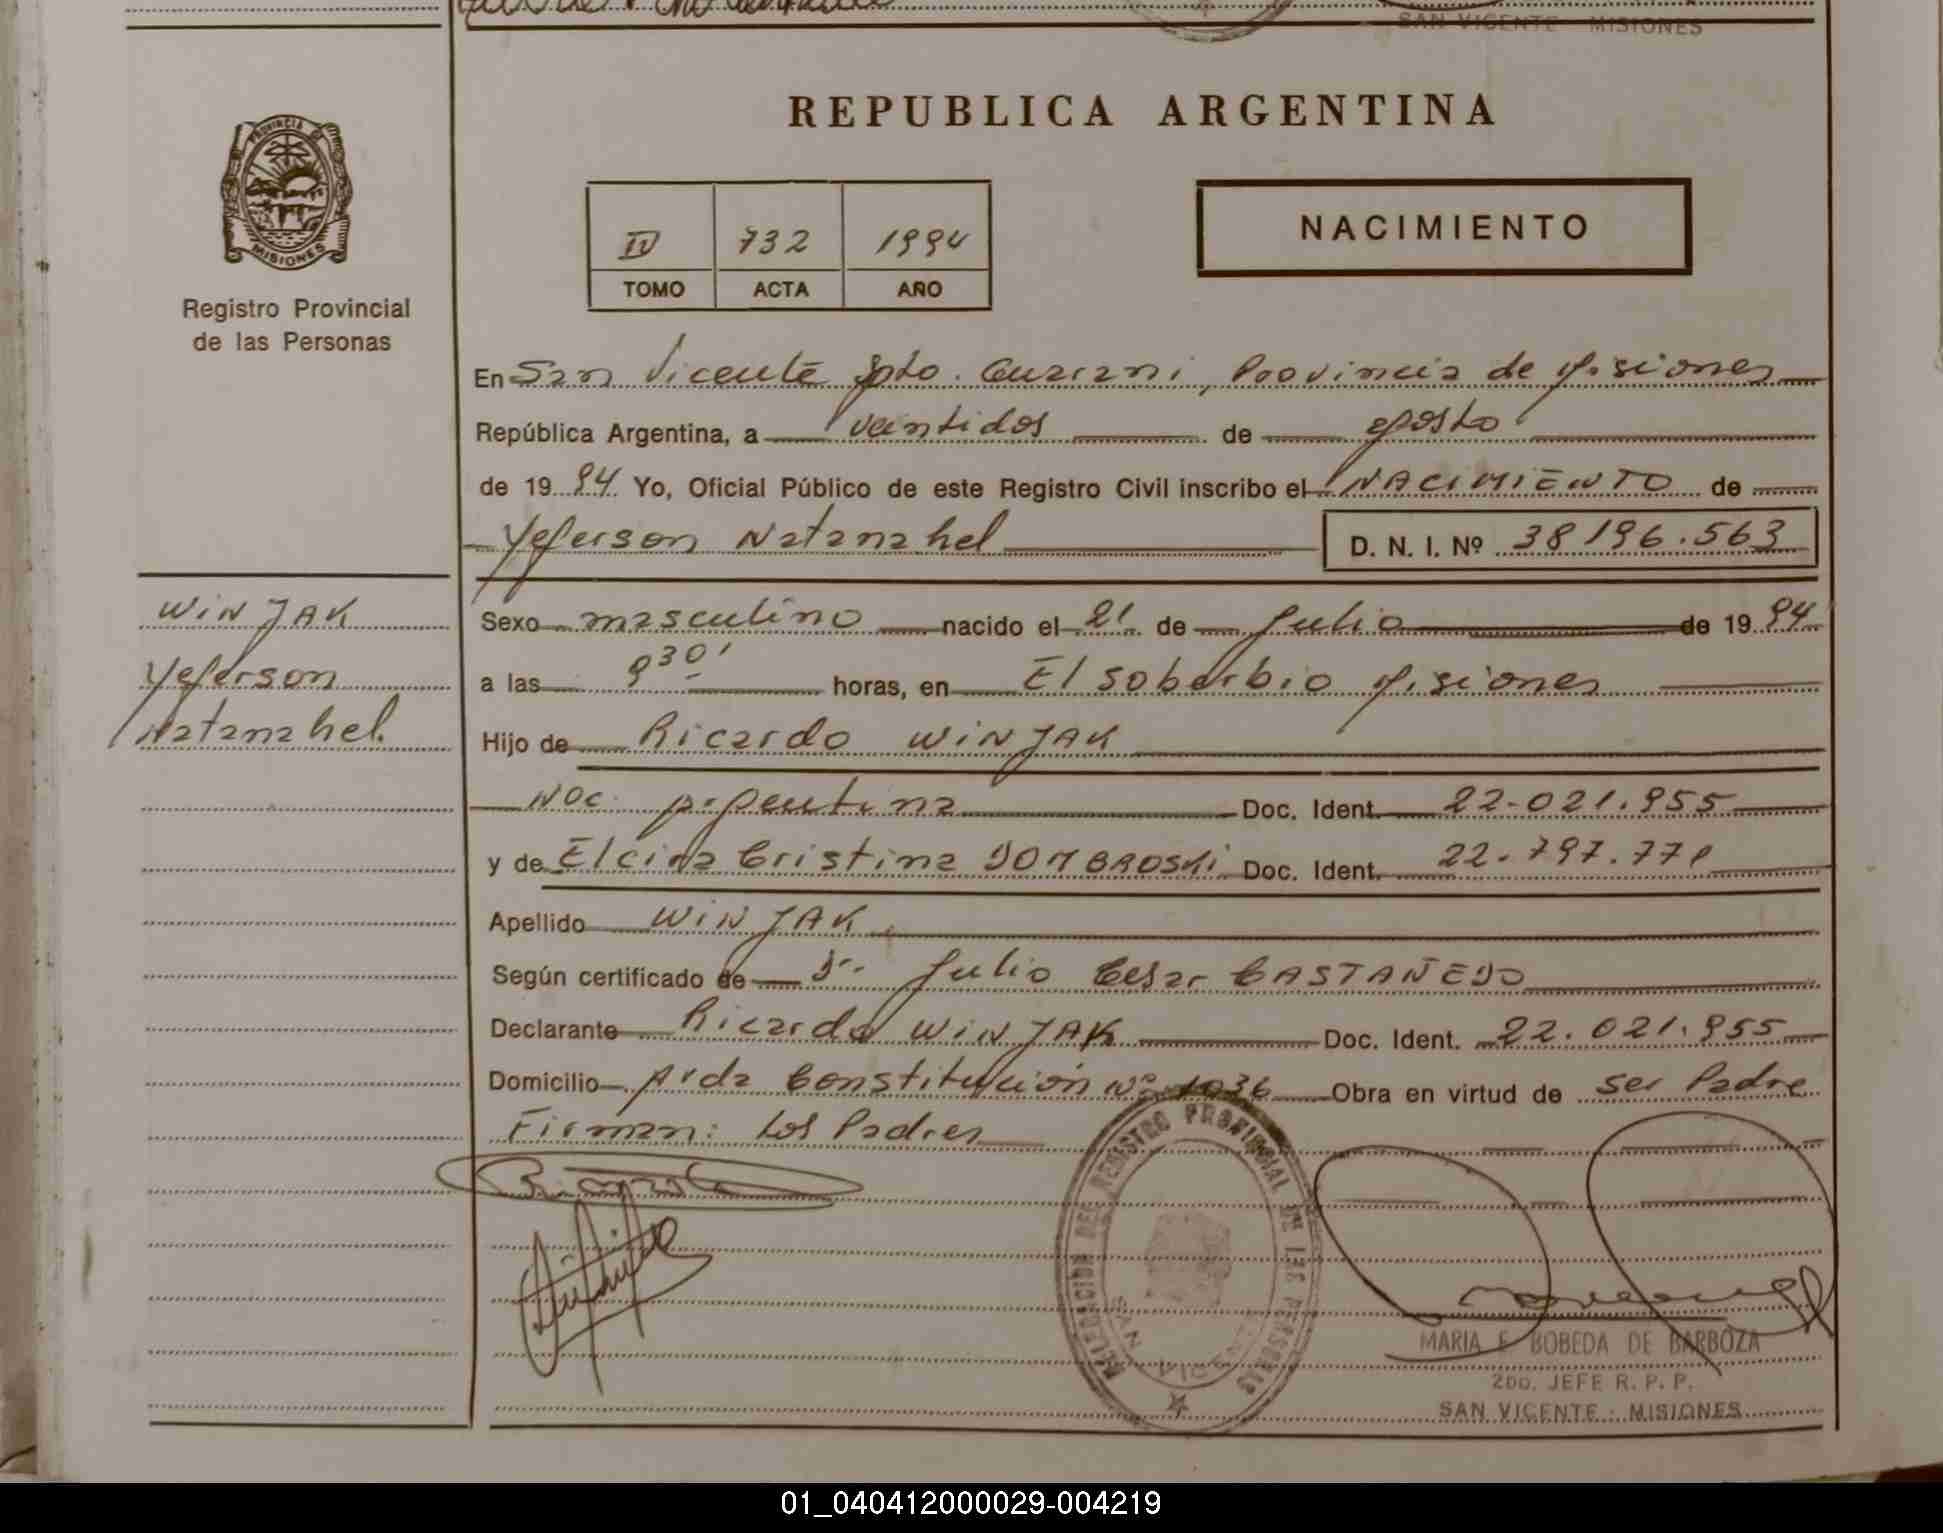 SAN VICENTE MISIONES
PROVINCIA
MISIONES
Registro Provincial
de las Personas
REPUBLICA ARGENTINA
IV 732 1994
TOMO ACTA AÑO
NACIMIENTO
En San Vicente Dpto. Guarani, Provincia de Misiones
República Argentina, a veintidos de agosto
de 1994 Yo, Oficial Público de este Registro Civil inscribo el NACIMIENTO de
Yeferson Natanahel D. N. I. Nº 38196.563
WINJAK
Yeferson
Natanahel.
Sexo masculino nacido el 21 de Julio de 1994
a las 930' horas, en El soberbio Misiones
Hijo de Ricardo WINJAK
Nac. Argentina Doc. Ident. 22.021.955
y de Elcira Cristina DOMBROSKI Doc. Ident. 22.797.77
Apellido WINJAK
Según certificado de Dr. Julio Cesar CASTAÑEDO
Declarante Ricardo WINJAK Doc. Ident. 22.021.955
Domicilio Avda Constitución Nº 1036 Obra en virtud de ser Padre
Firman: Los Padres
DELEGACION DEL REGISTRO PROVINCIAL DE LAS PERSONAS
SAN VICENTE
MARIA E BOBEDA DE BARBOZA
2DO. JEFE R. P. P.
SAN VICENTE - MISIONES
01_040412000029-004219